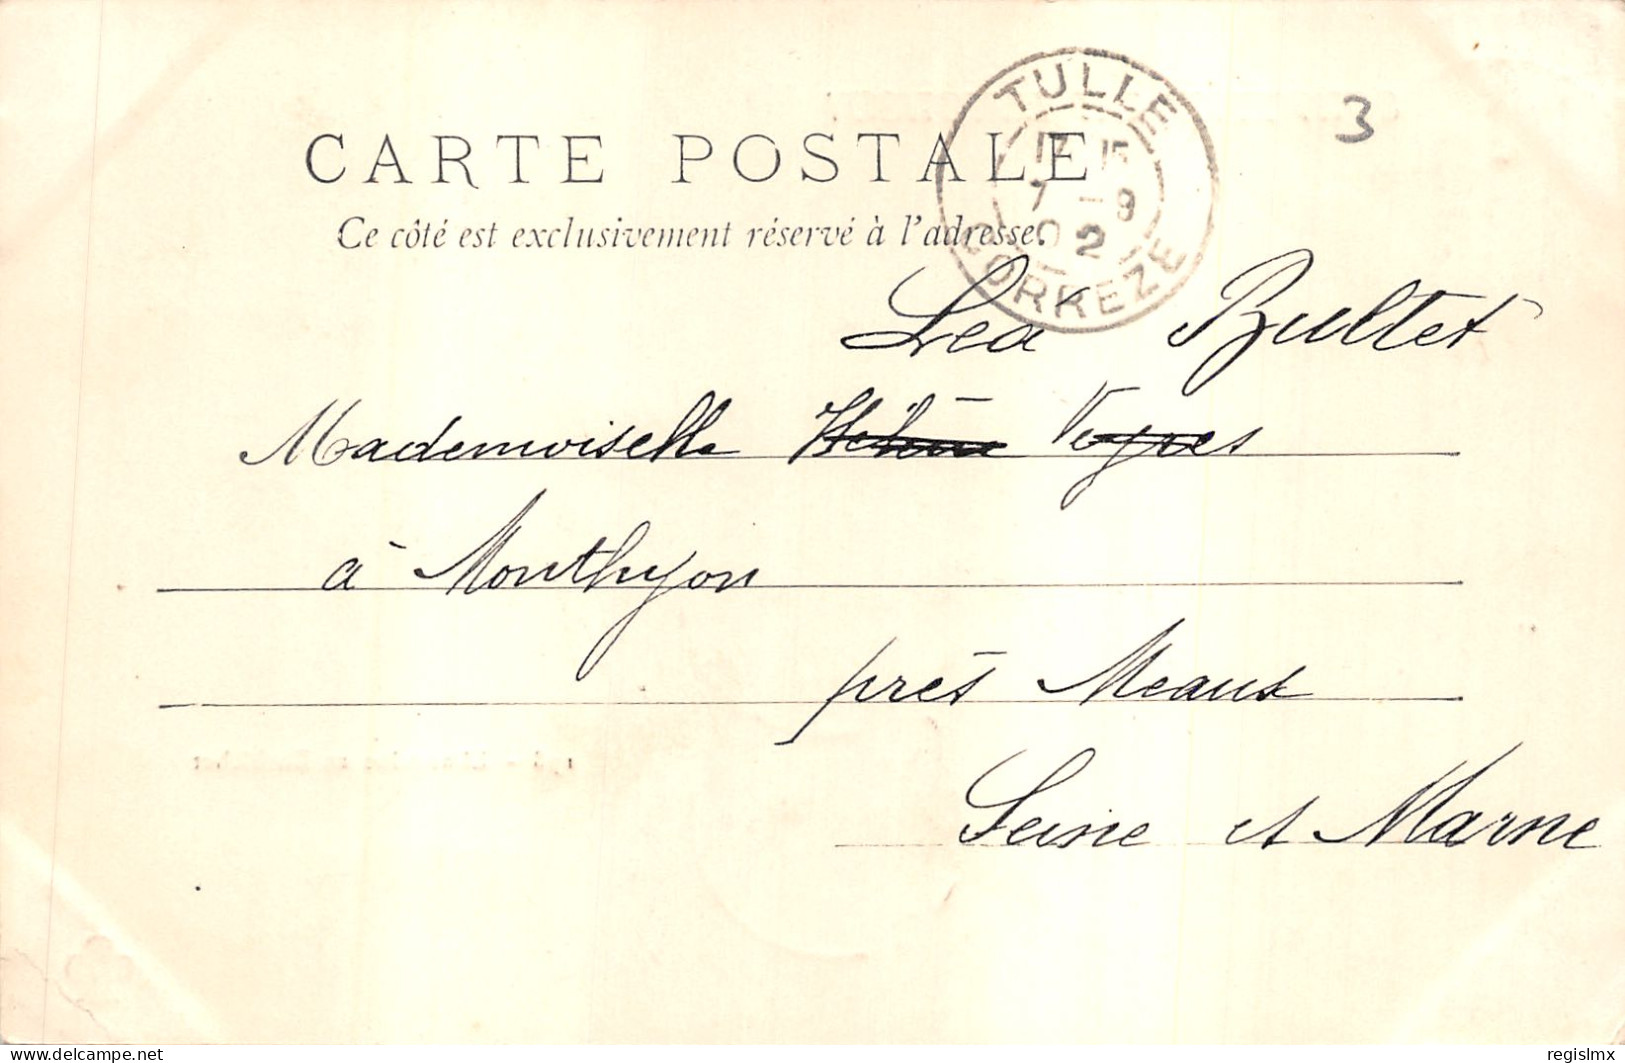 CARTE POSTALE
Ce côté est exclusivement réservé à l'adresse.
TULLE
17 15
7 - 9
02
CORREZE
3
Lea Bultet
Mademoiselle Hélène
à Monthyon
près Meaux
Seine et Marne
www.delcampe.net
regislmx